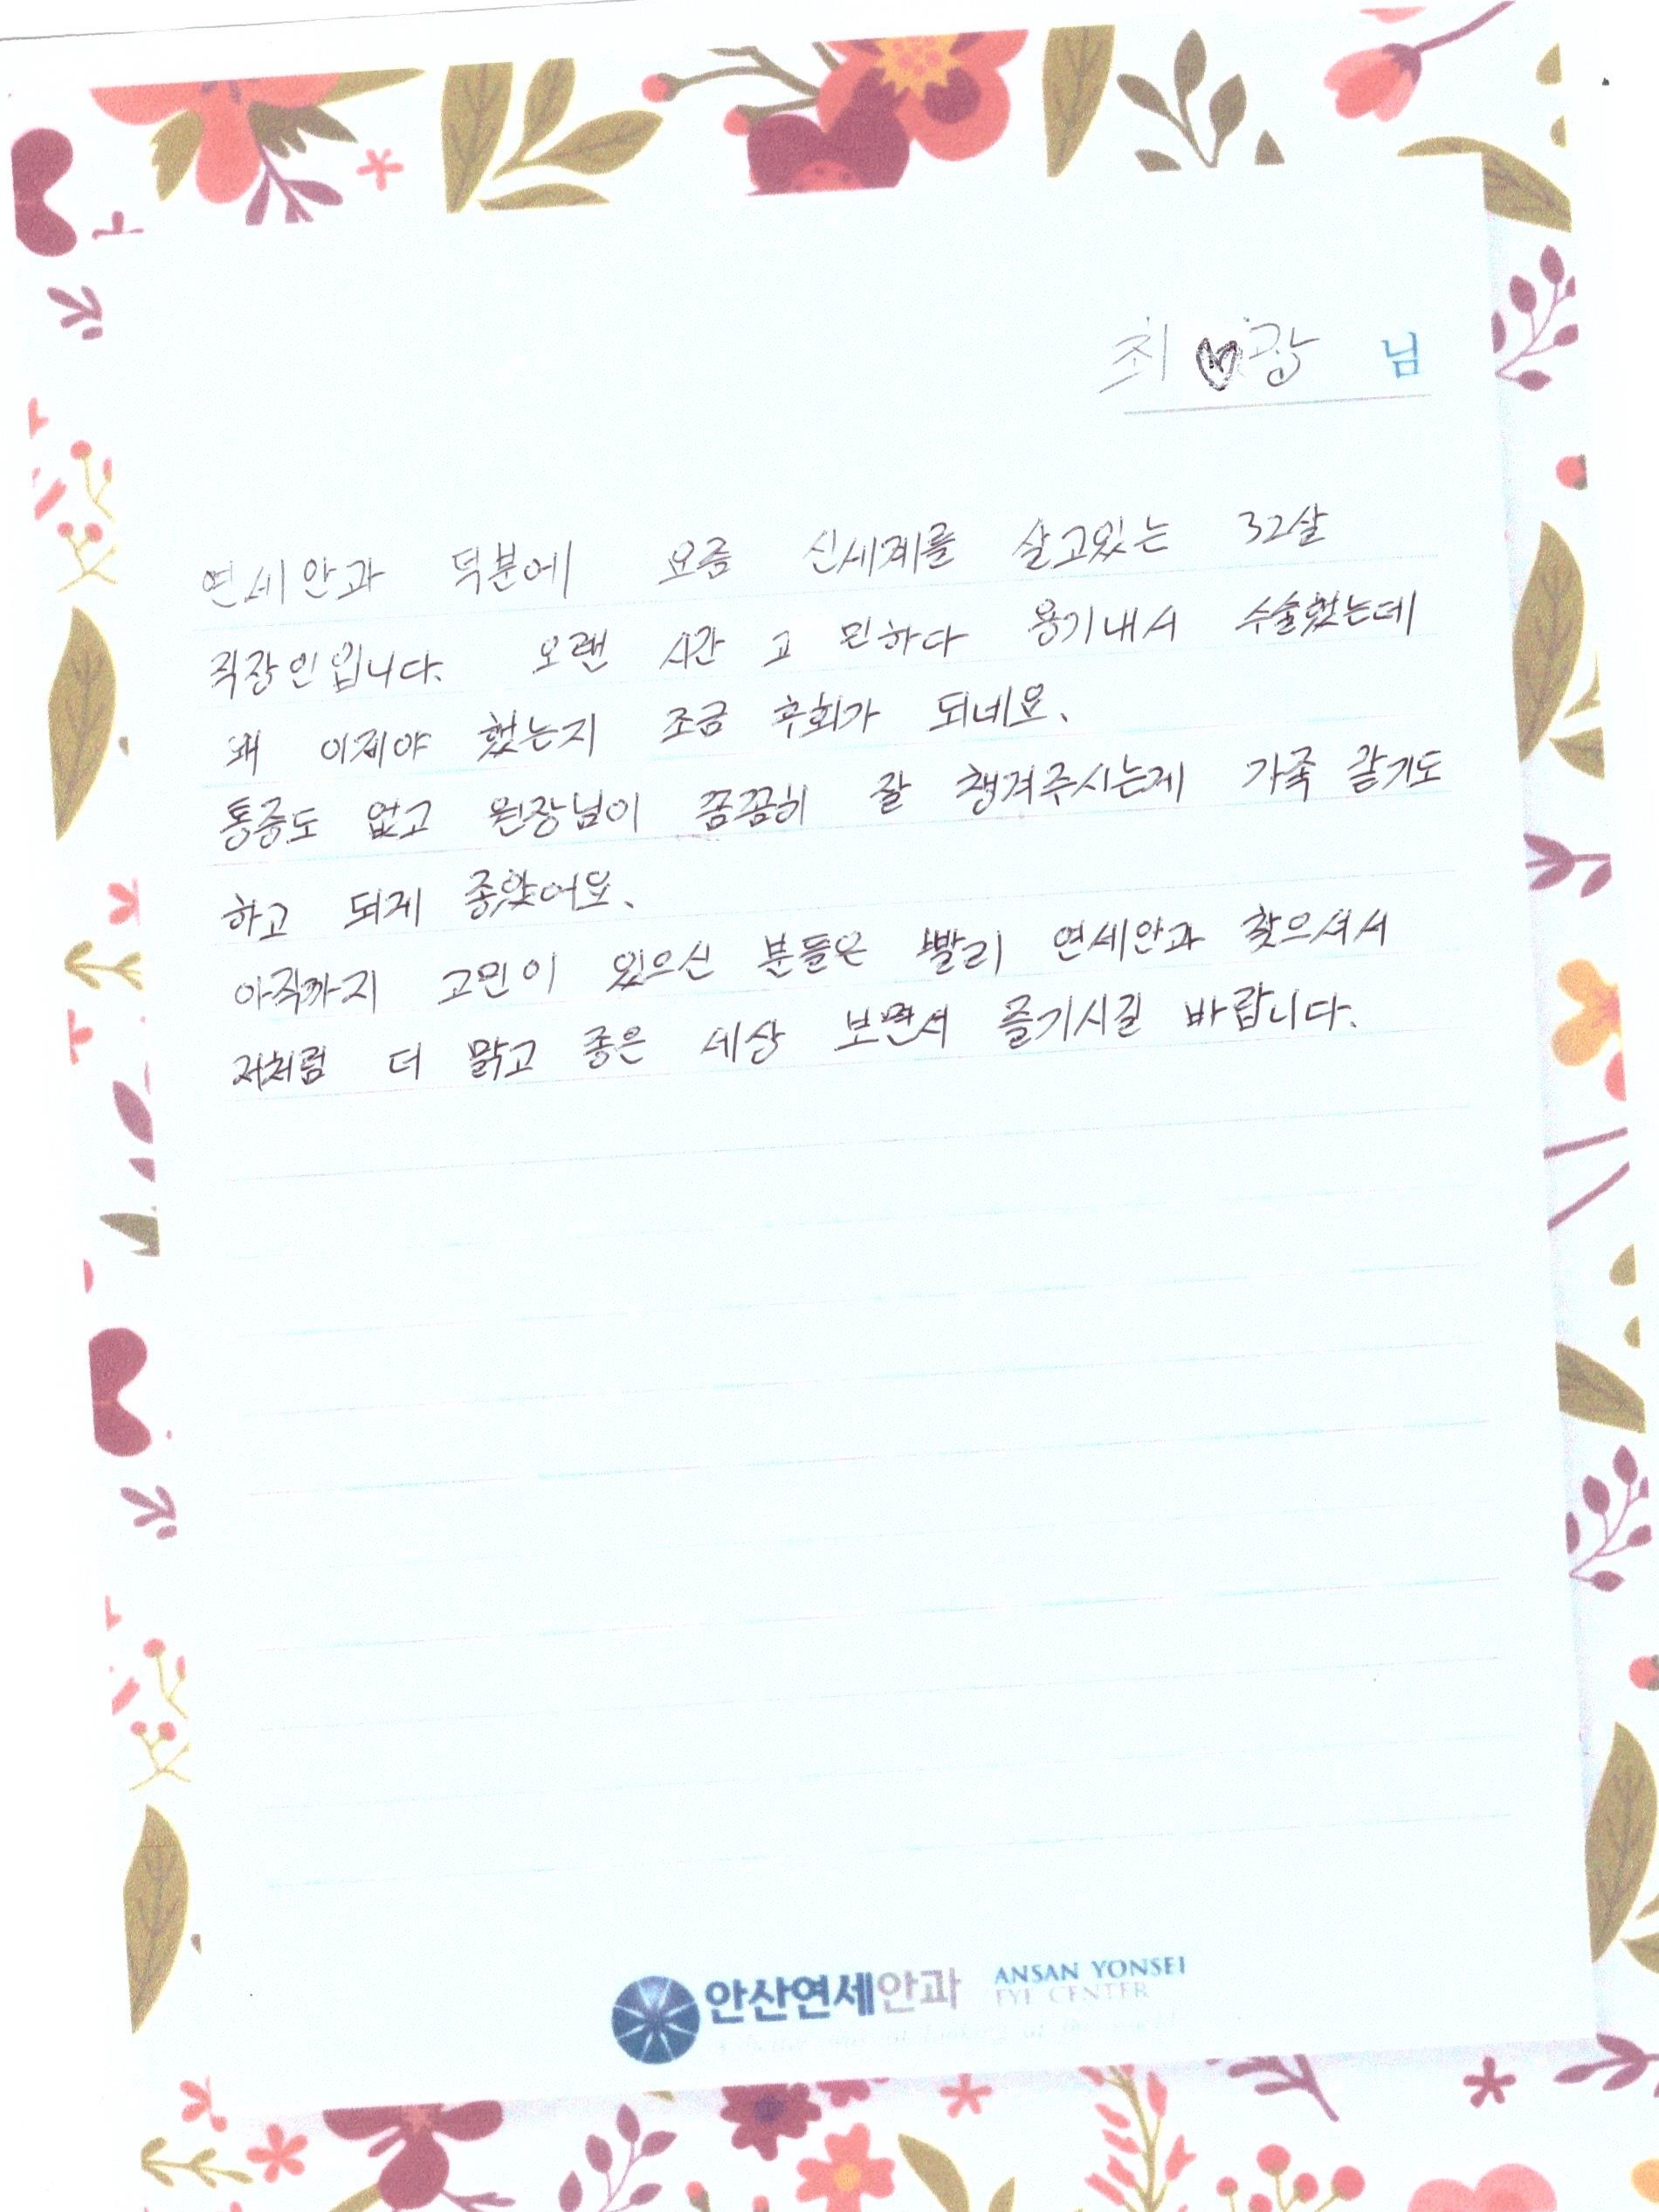 최 ♥광 님
연세안과 덕분에 요즘 신세계를 살고있는 32살
직장인입니다. 오랜 시간 고민하다 용기내서 수술했는데
왜 이제야 했는지 조금 후회가 되네요.
통증도 없고 원장님이 꼼꼼히 잘 챙겨주시는게 가족 같기도
하고 되게 좋았어요.
아직까지 고민이 있으신 분들은 빨리 연세안과 찾으셔서
저처럼 더 맑고 좋은 세상 보면서 즐기시길 바랍니다.
안산연세안과 ANSAN YONSEI
EYE CENTER